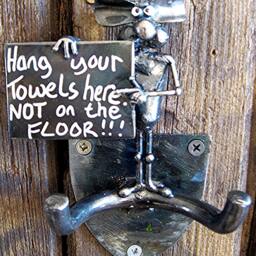 Hang your
Towels here
NOT on the
FLOOR!!!